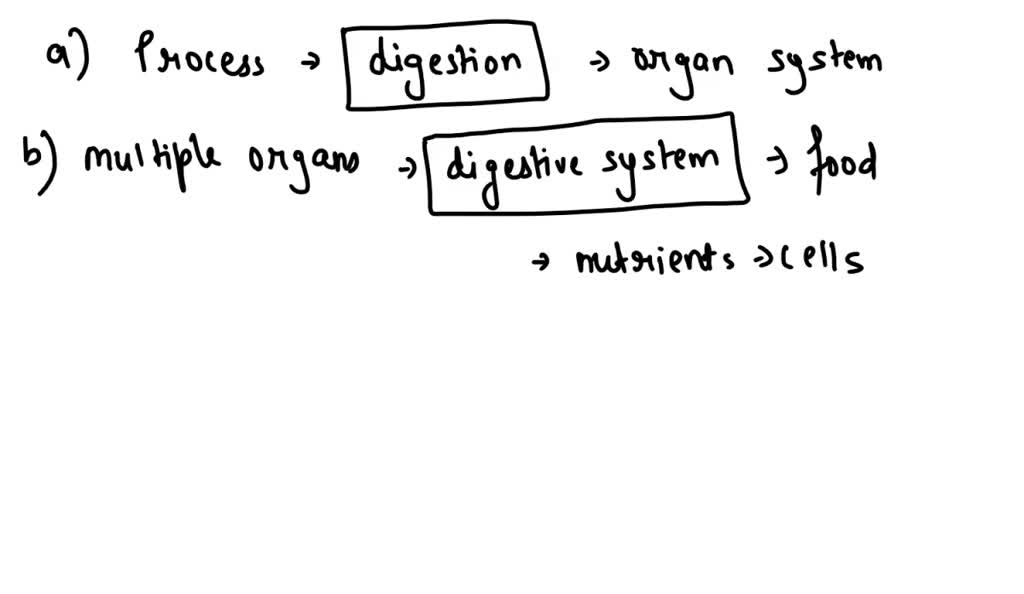 a) Process → digestion → organ system
b) multiple organs → digestive system → food
→ nutrients → cells